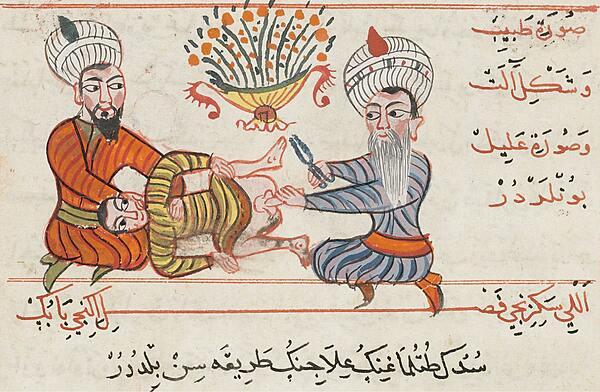 صُورَة طَبِيبْ
وَشَكْلِ آلَتْ
وَصُورَة عَلِيلْ
بُونْلَرْدُرْ
اَللِي سَكِزِنْجِي فَصْلِ اِكِنْجِي بَابُكْ
سُدُكْ طُتُلْمَاغِينُكْ عِلَاجِنُكْ طَرِيقَه سِنْ بِلْدُرُرْ